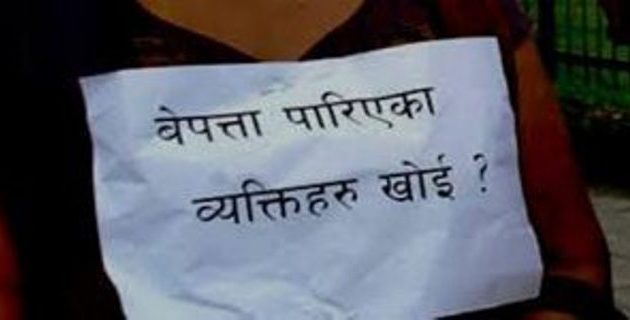 वेपत्ता पारिएका
व्यक्तिहरु खोई ?